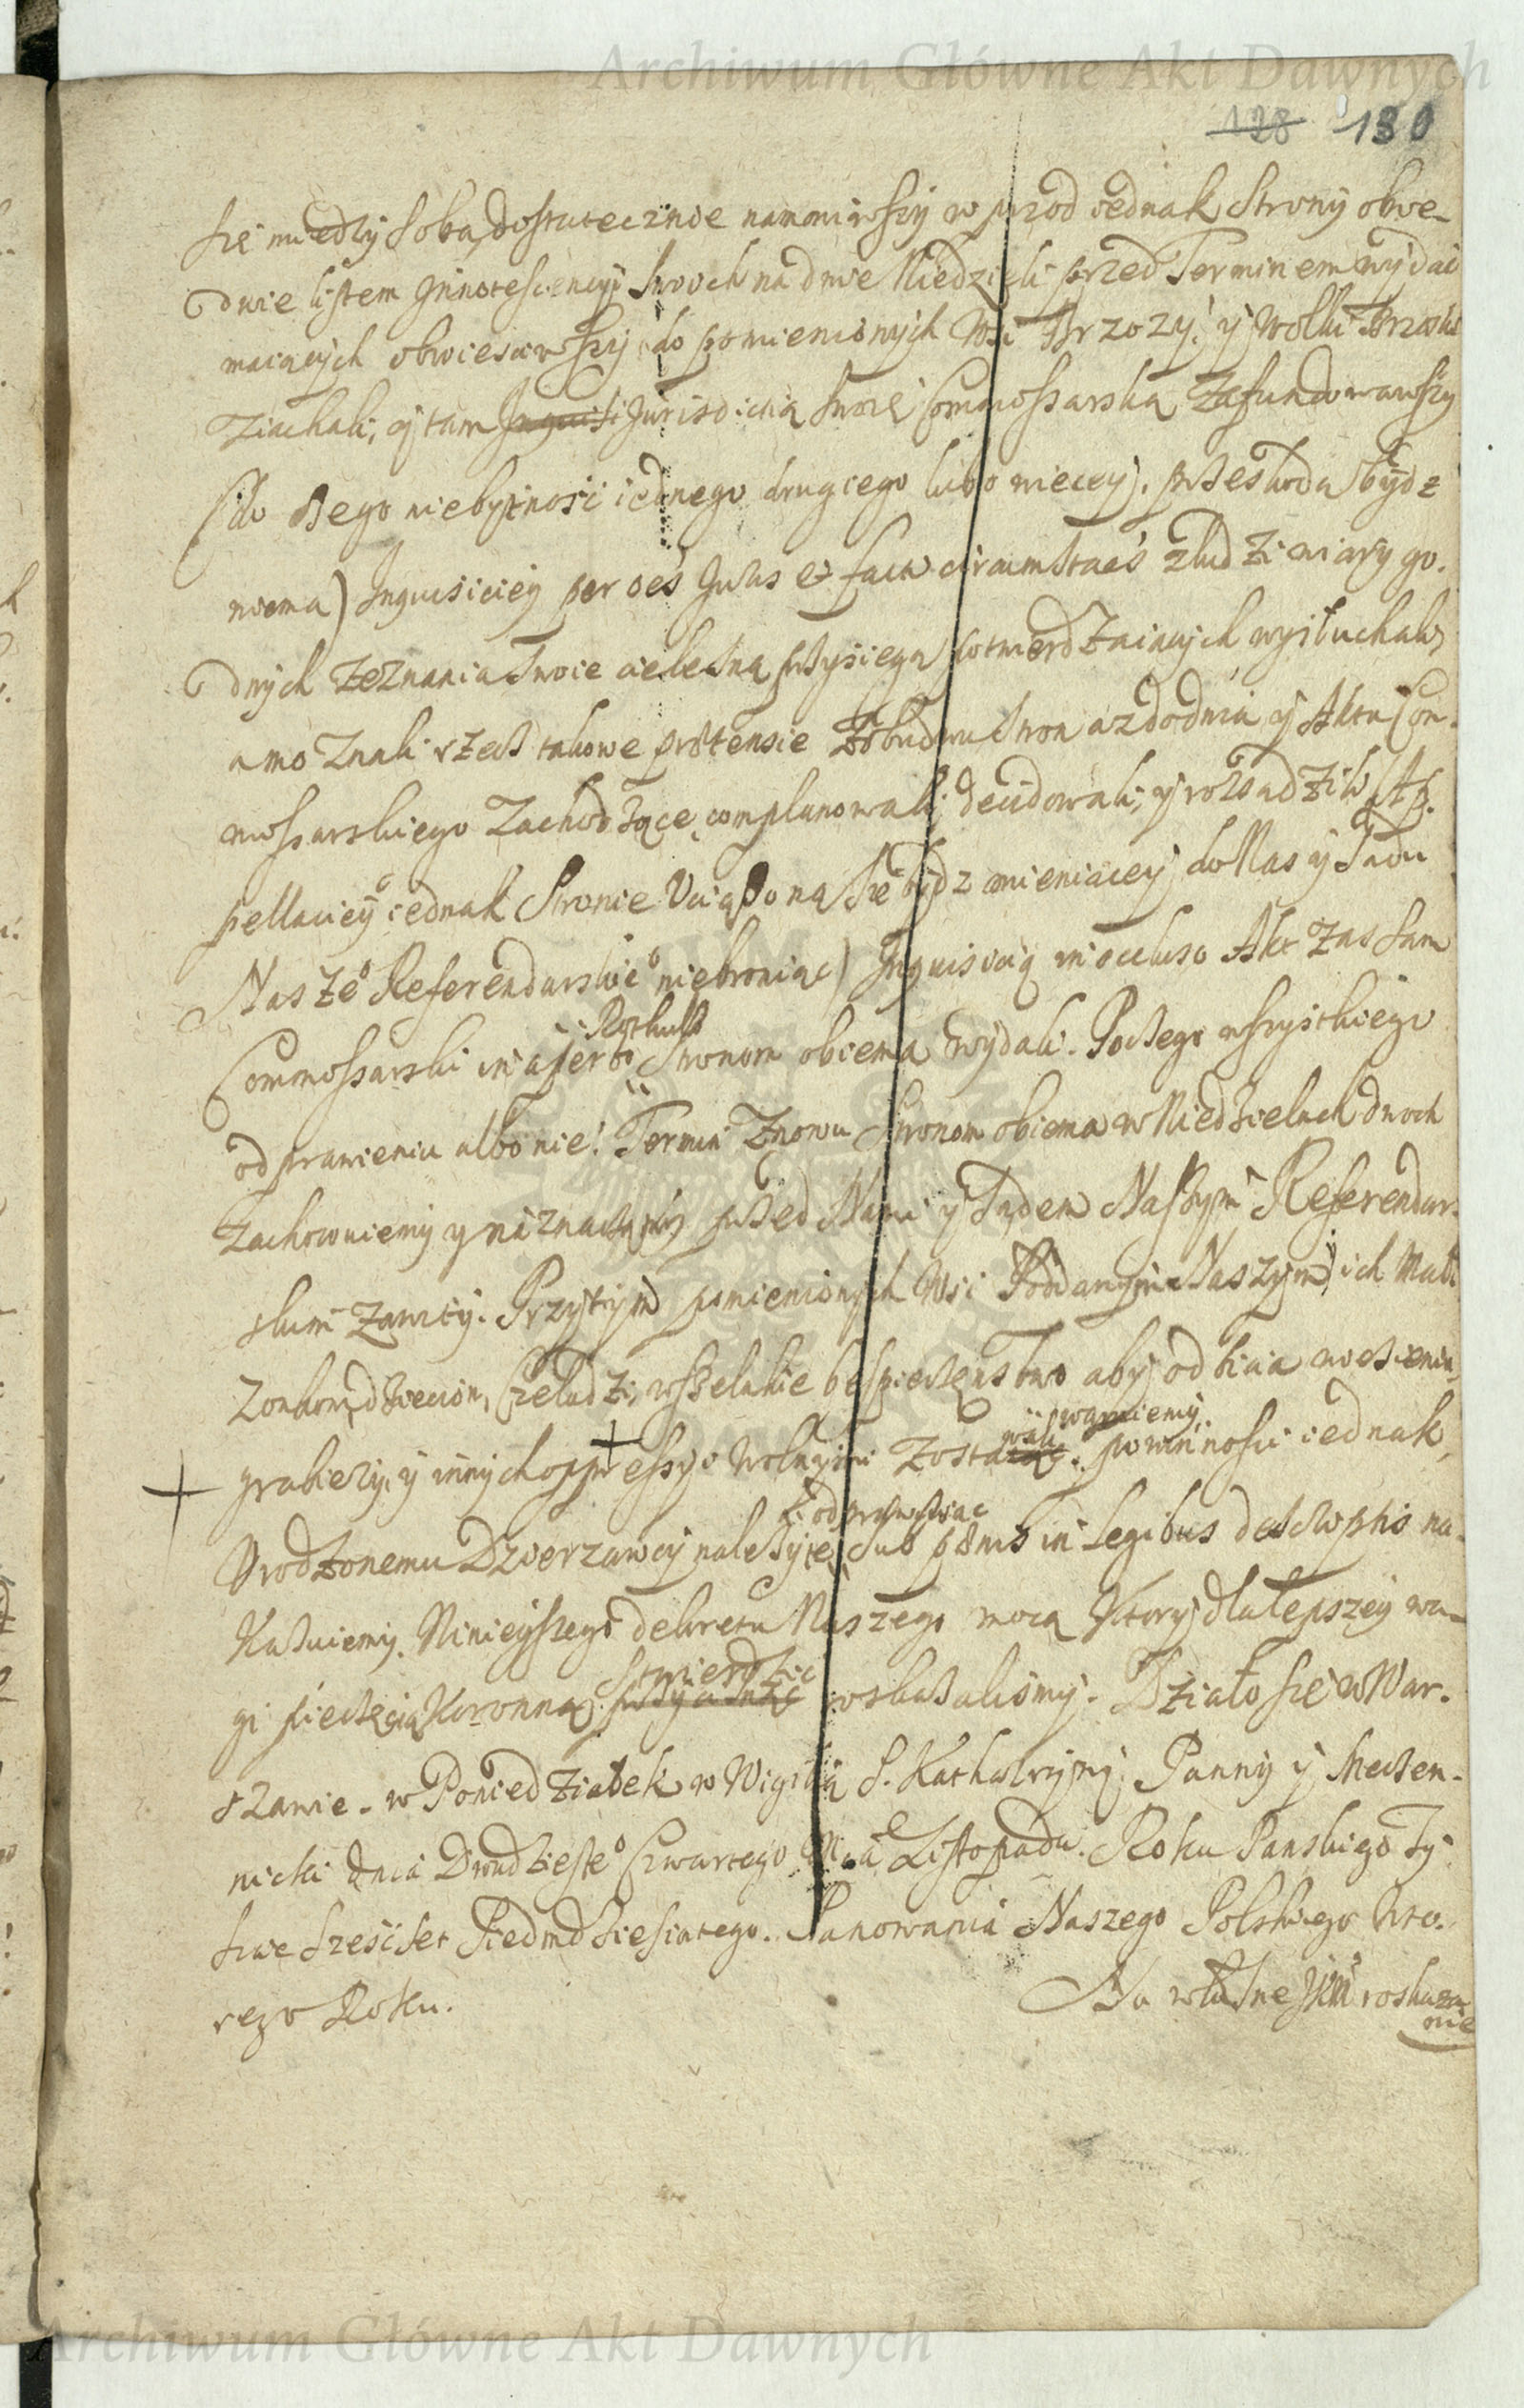 Archiwum Główne Akt Dawnych
128 130
się miedzy Sobą dostatecznie namowiwszy w przod iednak Strony obie
dwie listem Innotescencyi Swoich na dwie Niedzieli przed Terminem wydać
maiących obwiesciwszy do pomienionych Wsi Brzozy, y Wolki Brzoski
Ziachali, y tam Inquisi Jurisdictią Swoię Commossarską Zafundowawszy
(do czego niebytność iednego drugiego lubo więcey, przeskodą bydz
niema) Inquisiciey per oes Juris et facti circumstaes z ludzi wiary go-
dnych zeznania Swoie cielesną przysięgą potwierdzaiących wysłuchali,
a mo Znali wzaś takowe praetensie Za obudwu Stron azdodnia y Aktu Com-
mossarskiego Zachodzące, complanowali, decidowali, y rozsądzili, (Ap-
pellaciey iednak Stronie Uciążoną się bydz mieniącey do Nas y Sądu
Naszeo Referendarskieo niebroniąc) Inquisicią in occluso Akt Zas Sam
Commossarski in aperto Rothuls Stronom obiema wydali. Po czego wszystkiego
odprawieniu albo nie! Termin Znowu Stronom obiema w Niedzielach dwoch
Zachowuiemy y naznaczamy przed Nami y Sądem Naszym Referendar-
skim Zawity. Przytym pomienionych Wsi Poddanym Naszym, ich Mał-
zonkom, dzieciom, Czeladzi, wszelakie bespieczenstwo aby od bicia więzienia,
grabiezy, y innych oppressyi wolnymi Zostawali warniemy. powinności iednak
Urodzonemu Dzierzawcy należyte odprawowac Sub paenis in Legibus descriptis na-
kazuiemy. Ninieyszego dekretu Naszego mocą Ktory dla lepszey wa-
gi pieczęcią Koronną stwierdzić przycisnąc roskazaliśmy. Działo się w War-
szawie. w Poniedziałek w Wigilią S. Katharzyny Panny y Męczen-
nicki dnia Dwudziesteo Czwartego Mca Listopada. Roku Panskiego Ty-
siąc Sześćset Siedmdziesiątego. Panowania Naszego Polskiego Wto-
rego Roku.
Na własne JKM roskaza
nie
Archiwum Główne Akt Dawnych